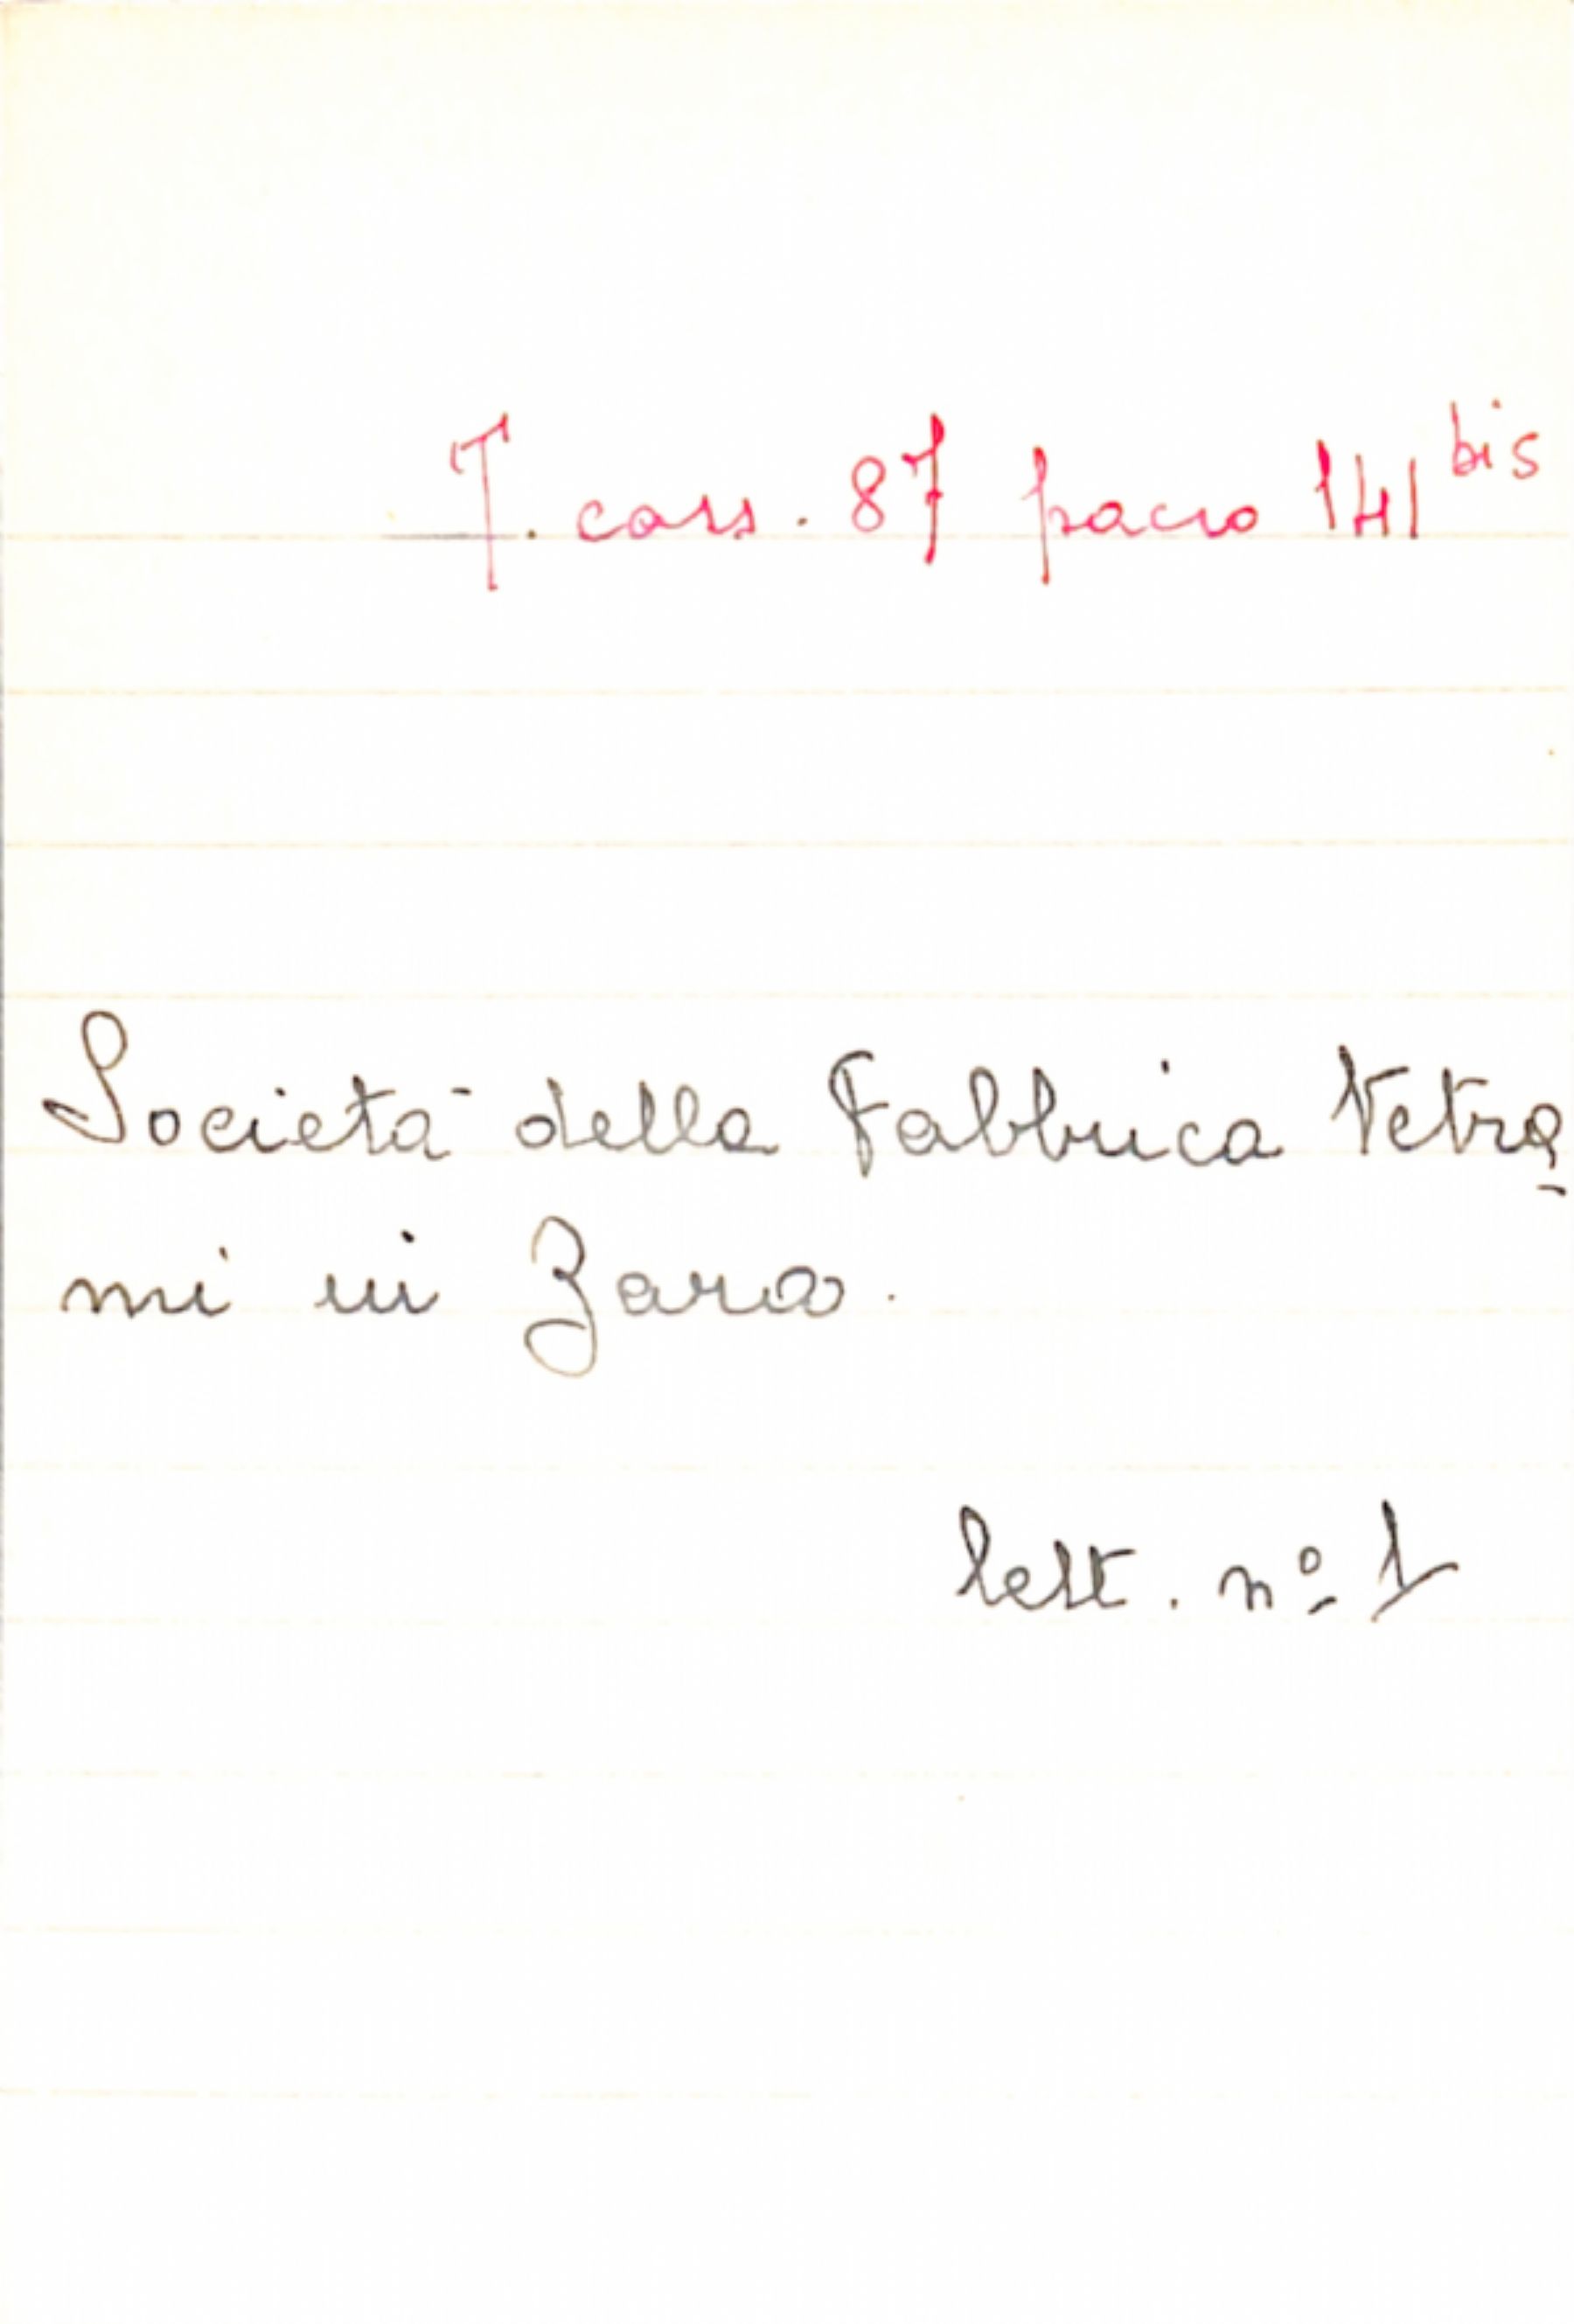 T. cass. 87 pacco 141 bis
Società della Fabbrica Vetra-
mi in Zara.
lett. nº 1